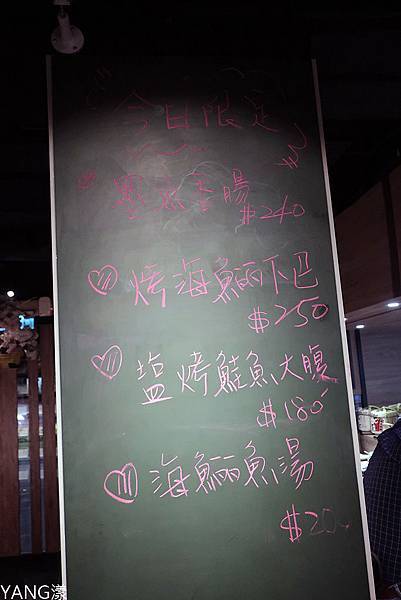 今日限定
墨魚香腸
$240
烤海鱺下巴
$250
塩烤鮭魚大腹
$180
海鱺魚湯
$20
YANG漾